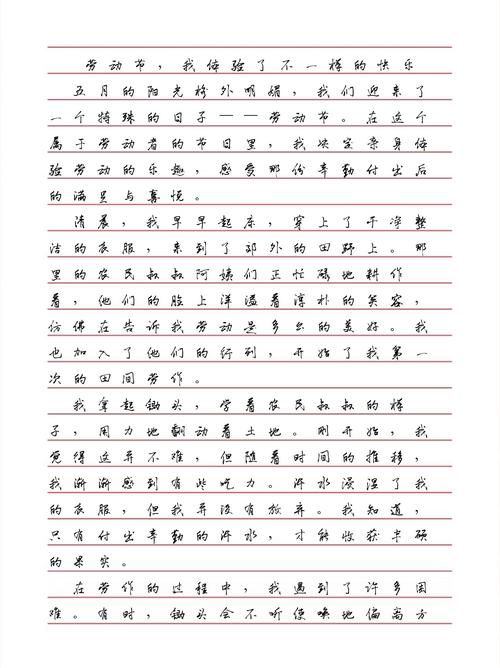 劳动节，我体验了不一样的快乐
五月的阳光格外明媚，我们迎来了
一个特殊的日子——劳动节。在这个
属于劳动者的节日里，我决定亲身体
验劳动的乐趣，感受那份辛勤付出后
的满足与喜悦。
清晨，我早早起床，穿上了干净整
洁的衣服，来到了郊外的田野上。那
里的农民叔叔阿姨们正忙碌地耕作
着，他们的脸上洋溢着淳朴的笑容，
仿佛在告诉我劳动是多么的美好。我
也加入了他们的行列，开始了我第一
次的田间劳作。
我拿起锄头，学着农民叔叔的样
子，用力地翻动着土地。刚开始，我
觉得这并不难，但随着时间的推移，
我渐渐感到有些吃力。汗水浸湿了我
的衣服，但我并没有放弃。我知道，
只有付出辛勤的汗水，才能收获丰硕
的果实。
在劳作的过程中，我遇到了许多困
难。有时，锄头会不听使唤地偏离方